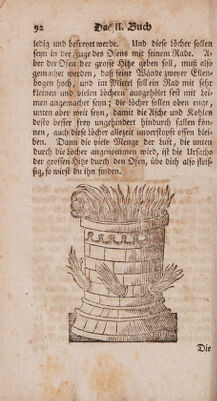 92 Das II. Buch
ledig und befreyet werde. Und diese löcher sollen
seyn in der Fuge des Ofens mit seinem Rade. A-
ber der Ofen der grosse Hitze geben soll, muß also
gemachet werden, daß seine Wände zweyer Ellen-
bogen hoch, und im Mittel soll ein Rad mit sehr
kleinen und vielen löchern ausgehölet fest mit lei-
men angemachet seyn; die löcher sollen oben enge,
unten aber weit seyn, damit die Asche und Kohlen
desto besser frey ungehindert hindurch fallen kön-
nen, auch diese löcher allezeit unverstopft offen blei-
ben. Dann die viele Menge der luft, die unten
durch die löcher angenommen wird, ist die Ursache
der grossen Hitze durch den Ofen, übe dich also fleis-
sig, so wirst du ihn finden.
Die